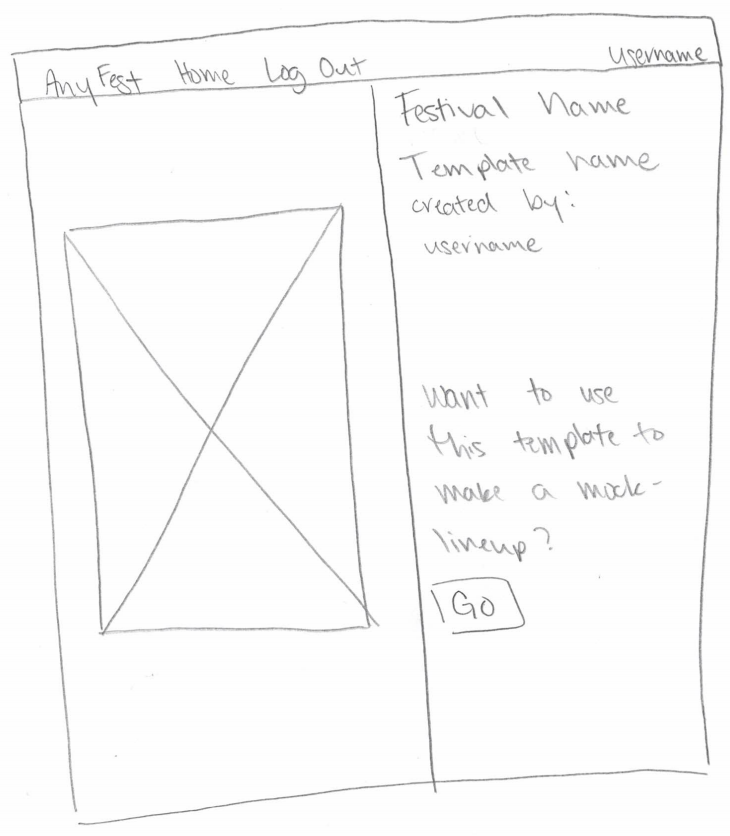 AnyFest Home Log Out username
Festival Name
Template name
created by:
username
Want to use
this template to
make a mock-
lineup?
Go